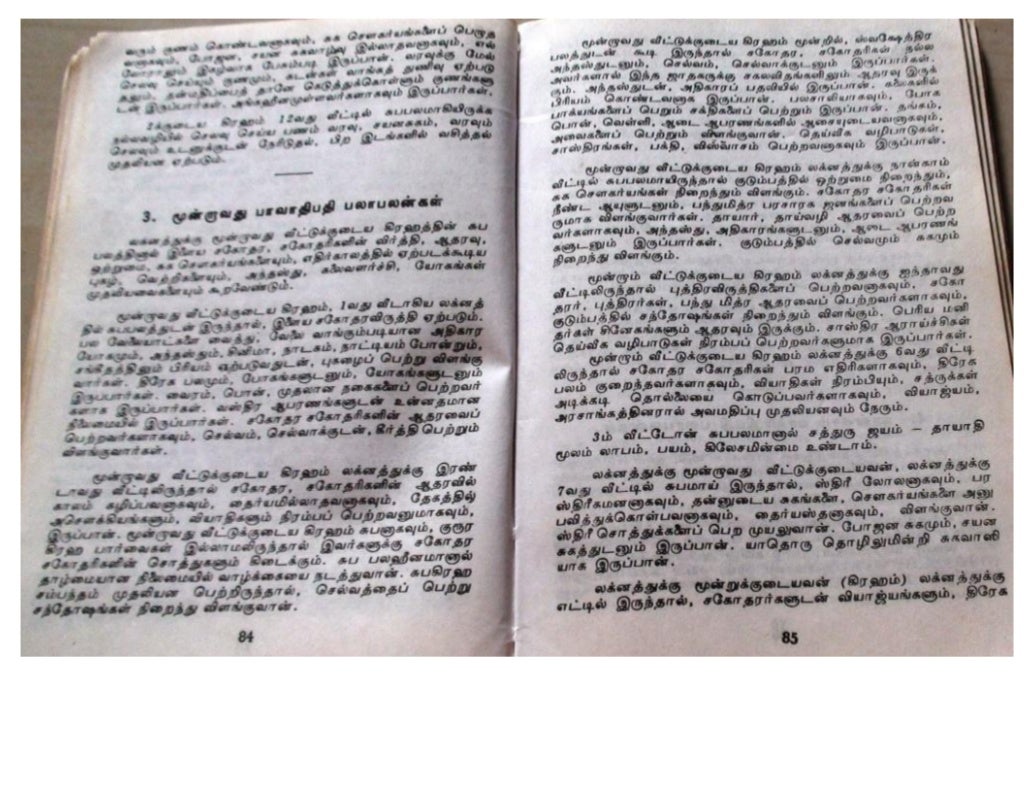 வரும் குணம் கொண்டவனாகவும், சுக சௌகர்யங்களைப் பெறாத
வனாகவும், போஜன, சயன சுகவாழ்வு இல்லாதவனாகவும், எல்
லோராலும் இகழ்வாக பேசும்படி இருப்பான். வரவுக்கு மேல்
செலவு செய்யும் குணமும், கடன்கள் வாங்கத் துணிவு ஏற்படு
தலும், தன்மதிப்பைத் தானே கெடுத்துக்கொள்ளும் குணங்களு
டன் இருப்பார்கள். அங்கஹீனமுள்ளவர்களாகவும் இருப்பார்கள்.
2க்குடைய கிரஹம் 12வது வீட்டில் சுபபலமாகியிருக்க
நல்லவழியில் செலவு செய்ய பணம் வரவு, சயனசுகம், வரவும்
செலவும் உடனுக்குடன் நேரிடுதல், பிற இடங்களில் வசித்தல்
முதலியன ஏற்படும்.
3. மூன்றாவது பாவாதிபதி பலாபலன்கள்
லக்னத்துக்கு மூன்றாவது வீட்டுக்குடைய கிரஹத்தின் சுப
பலத்தினால் இளைய சகோதர, சகோதரிகளின் விர்த்தி, ஆதரவு,
ஒற்றுமை, சுக சௌகர்யங்களையும், எதிர்காலத்தில் ஏற்படக்கூடிய
புகழ், வெற்றிகளையும், அந்தஸ்து, கலைவளர்ச்சி, யோகங்கள்
முதலியவைகளையும் கூறவேண்டும்.
மூன்றாவது வீட்டுக்குடைய கிரஹம், 1வது வீடாகிய லக்னத்
தில் சுபபலத்துடன் இருந்தால், இளைய சகோதரவிருத்தி ஏற்படும்.
பல வேலையாட்களை வைத்து, வேலை வாங்கும்படியான அதிகார
யோகமும், அந்தஸ்தும், சினிமா, நாடகம், நாட்டியம் போன்றும்,
சங்கீதத்திலும் பிரியம் ஏற்படுவதுடன், புகழைப் பெற்று விளங்கு
வார்கள். திரேக பலமும், போகங்களுடனும், யோகங்களுடனும்
இருப்பார்கள். வைரம், பொன், முதலான நகைகளைப் பெற்றவர்
களாக இருப்பார்கள். வஸ்திர ஆபரணங்களுடன் உன்னதமான
நிலைமையில் இருப்பார்கள். சகோதர சகோதரிகளின் ஆதரவைப்
பெற்றவர்களாகவும், செல்வம், செல்வாக்குடன், கீர்த்தி பெற்றும்
விளங்குவார்கள்.
மூன்றாவது வீட்டுக்குடைய கிரஹம் லக்னத்துக்கு இரண்
டாவது வீட்டிலிருந்தால் சகோதர, சகோதரிகளின் ஆதரவில்
காலம் கழிப்பவனாகவும், தைர்யமில்லாதவனாகவும், தேகத்தில்
அசௌக்கியங்களும், வியாதிகளும் நிரம்பப் பெற்றவனுமாகவும்,
இருப்பான். மூன்றாவது வீட்டுக்குடைய கிரஹம் சுபனாகவும், குரூர
கிரஹ பார்வைகள் இல்லாமலிருந்தால் இவர்களுக்கு சகோதர
சகோதரிகளின் சொத்துகளும் கிடைக்கும். சுப பலஹீனமானால்
தாழ்மையான நிலைமையில் வாழ்க்கையை நடத்துவான். சுபகிரஹ
சம்பந்தம் முதலியன பெற்றிருந்தால், செல்வத்தைப் பெற்று
சந்தோஷங்கள் நிறைந்து விளங்குவான்.
84
மூன்றாவது வீட்டுக்குடைய கிரஹம் மூன்றில், ஸ்வக்ஷேத்திர
பலத்துடன் கூடி இருந்தால் சகோதர, சகோதரிகள் நல்ல
அந்தஸ்துடனும், செல்வம், செல்வாக்குடனும் இருப்பார்கள்.
அவர்களால் இந்த ஜாதகருக்கு சகலவிதங்களிலும் ஆதரவு இருக்
கும், அந்தஸ்துடன், அதிகாரப் பதவியில் இருப்பான். கலைகளில்
பிரியம் கொண்டவனாக இருப்பான். பலசாலியாகவும், போக
பாக்யங்களைப் பெறும் சக்திகளைப் பெற்றும் இருப்பான். தங்கம்,
பொன், வெள்ளி, ஆடை ஆபரணங்களில் ஆசையுடையவனாகவும்,
அவைகளைப் பெற்றும் விளங்குவான். தெய்வீக வழிபாடுகள்,
சாஸ்திரங்கள், பக்தி, விஸ்வாசம் பெற்றவனாகவும் இருப்பான்.
மூன்றாவது வீட்டுக்குடைய கிரஹம் லக்னத்துக்கு நான்காம்
வீட்டில் சுபபலமாயிருந்தால் குடும்பத்தில் ஒற்றுமை நிறைந்தும்,
சுக சௌகர்யங்கள் நிறைந்தும் விளங்கும். சகோதர சகோதரிகள்
நீண்ட ஆயுளுடனும், பந்துமித்ர பரசாரக ஜனங்களைப் பெற்றவ
ருமாக விளங்குவார்கள். தாயார், தாய்வழி ஆதரவைப் பெற்ற
வர்களாகவும், அந்தஸ்து, அதிகாரங்களுடனும், ஆடை ஆபரணங்
களுடனும் இருப்பார்கள். குடும்பத்தில் செல்வமும் சுகமும்
நிறைந்து விளங்கும்.
மூன்றாம் வீட்டுக்குடைய கிரஹம் லக்னத்துக்கு ஐந்தாவது
வீட்டிலிருந்தால் புத்திரவிருத்திகளைப் பெற்றவனாகவும், சகோ
தரர், புத்திரர்கள், பந்து மித்ர ஆதரவைப் பெற்றவர்களாகவும்,
குடும்பத்தில் சந்தோஷங்கள் நிறைந்தும் விளங்கும். பெரிய மனி
தர்கள் சினேகங்களும் ஆதரவும் இருக்கும். சாஸ்திர ஆராய்ச்சிகள்
தெய்வீக வழிபாடுகள் நிரம்பப் பெற்றவர்களுமாக இருப்பார்கள்.
மூன்றாம் வீட்டுக்குடைய கிரஹம் லக்னத்துக்கு 6வது வீட்டி
லிருந்தால் சகோதர சகோதரிகள் பரம எதிரிகளாகவும், திரேக
பலம் குறைந்தவர்களாகவும், வியாதிகள் நிரம்பியும், சத்ருக்கள்
அடிக்கடி தொல்லையை கொடுப்பவர்களாகவும், வியாஜ்யம்,
அரசாங்கத்தினரால் அவமதிப்பு முதலியனவும் நேரும்.
3ம் வீட்டோன் சுபபலமானால் சத்துரு ஜயம் – தாயாதி
மூலம் லாபம், பயம், கிலேசமின்மை உண்டாம்.
லக்னத்துக்கு மூன்றாவது வீட்டுக்குடையவன், லக்னத்துக்கு
7வது வீட்டில் சுபமாய் இருந்தால், ஸ்திரீ லோலனாகவும், பர
ஸ்திரீகமனனாகவும், தன்னுடைய சுகங்களை, சௌகர்யங்களை அனு
பவித்துக்கொள்பவனாகவும், தைர்யஸ்தனாகவும், விளங்குவான்.
ஸ்திரீ சொத்துக்களைப் பெற முயலுவான். போஜன சுகமும், சயன
சுகத்துடனும் இருப்பான். யாதொரு தொழிலுமின்றி சுகவாஸி
யாக இருப்பான்.
லக்னத்துக்கு மூன்றுக்குடையவன் (கிரஹம்) லக்னத்துக்கு
எட்டில் இருந்தால், சகோதரர்களுடன் வியாஜ்யங்களும், திரேக
85